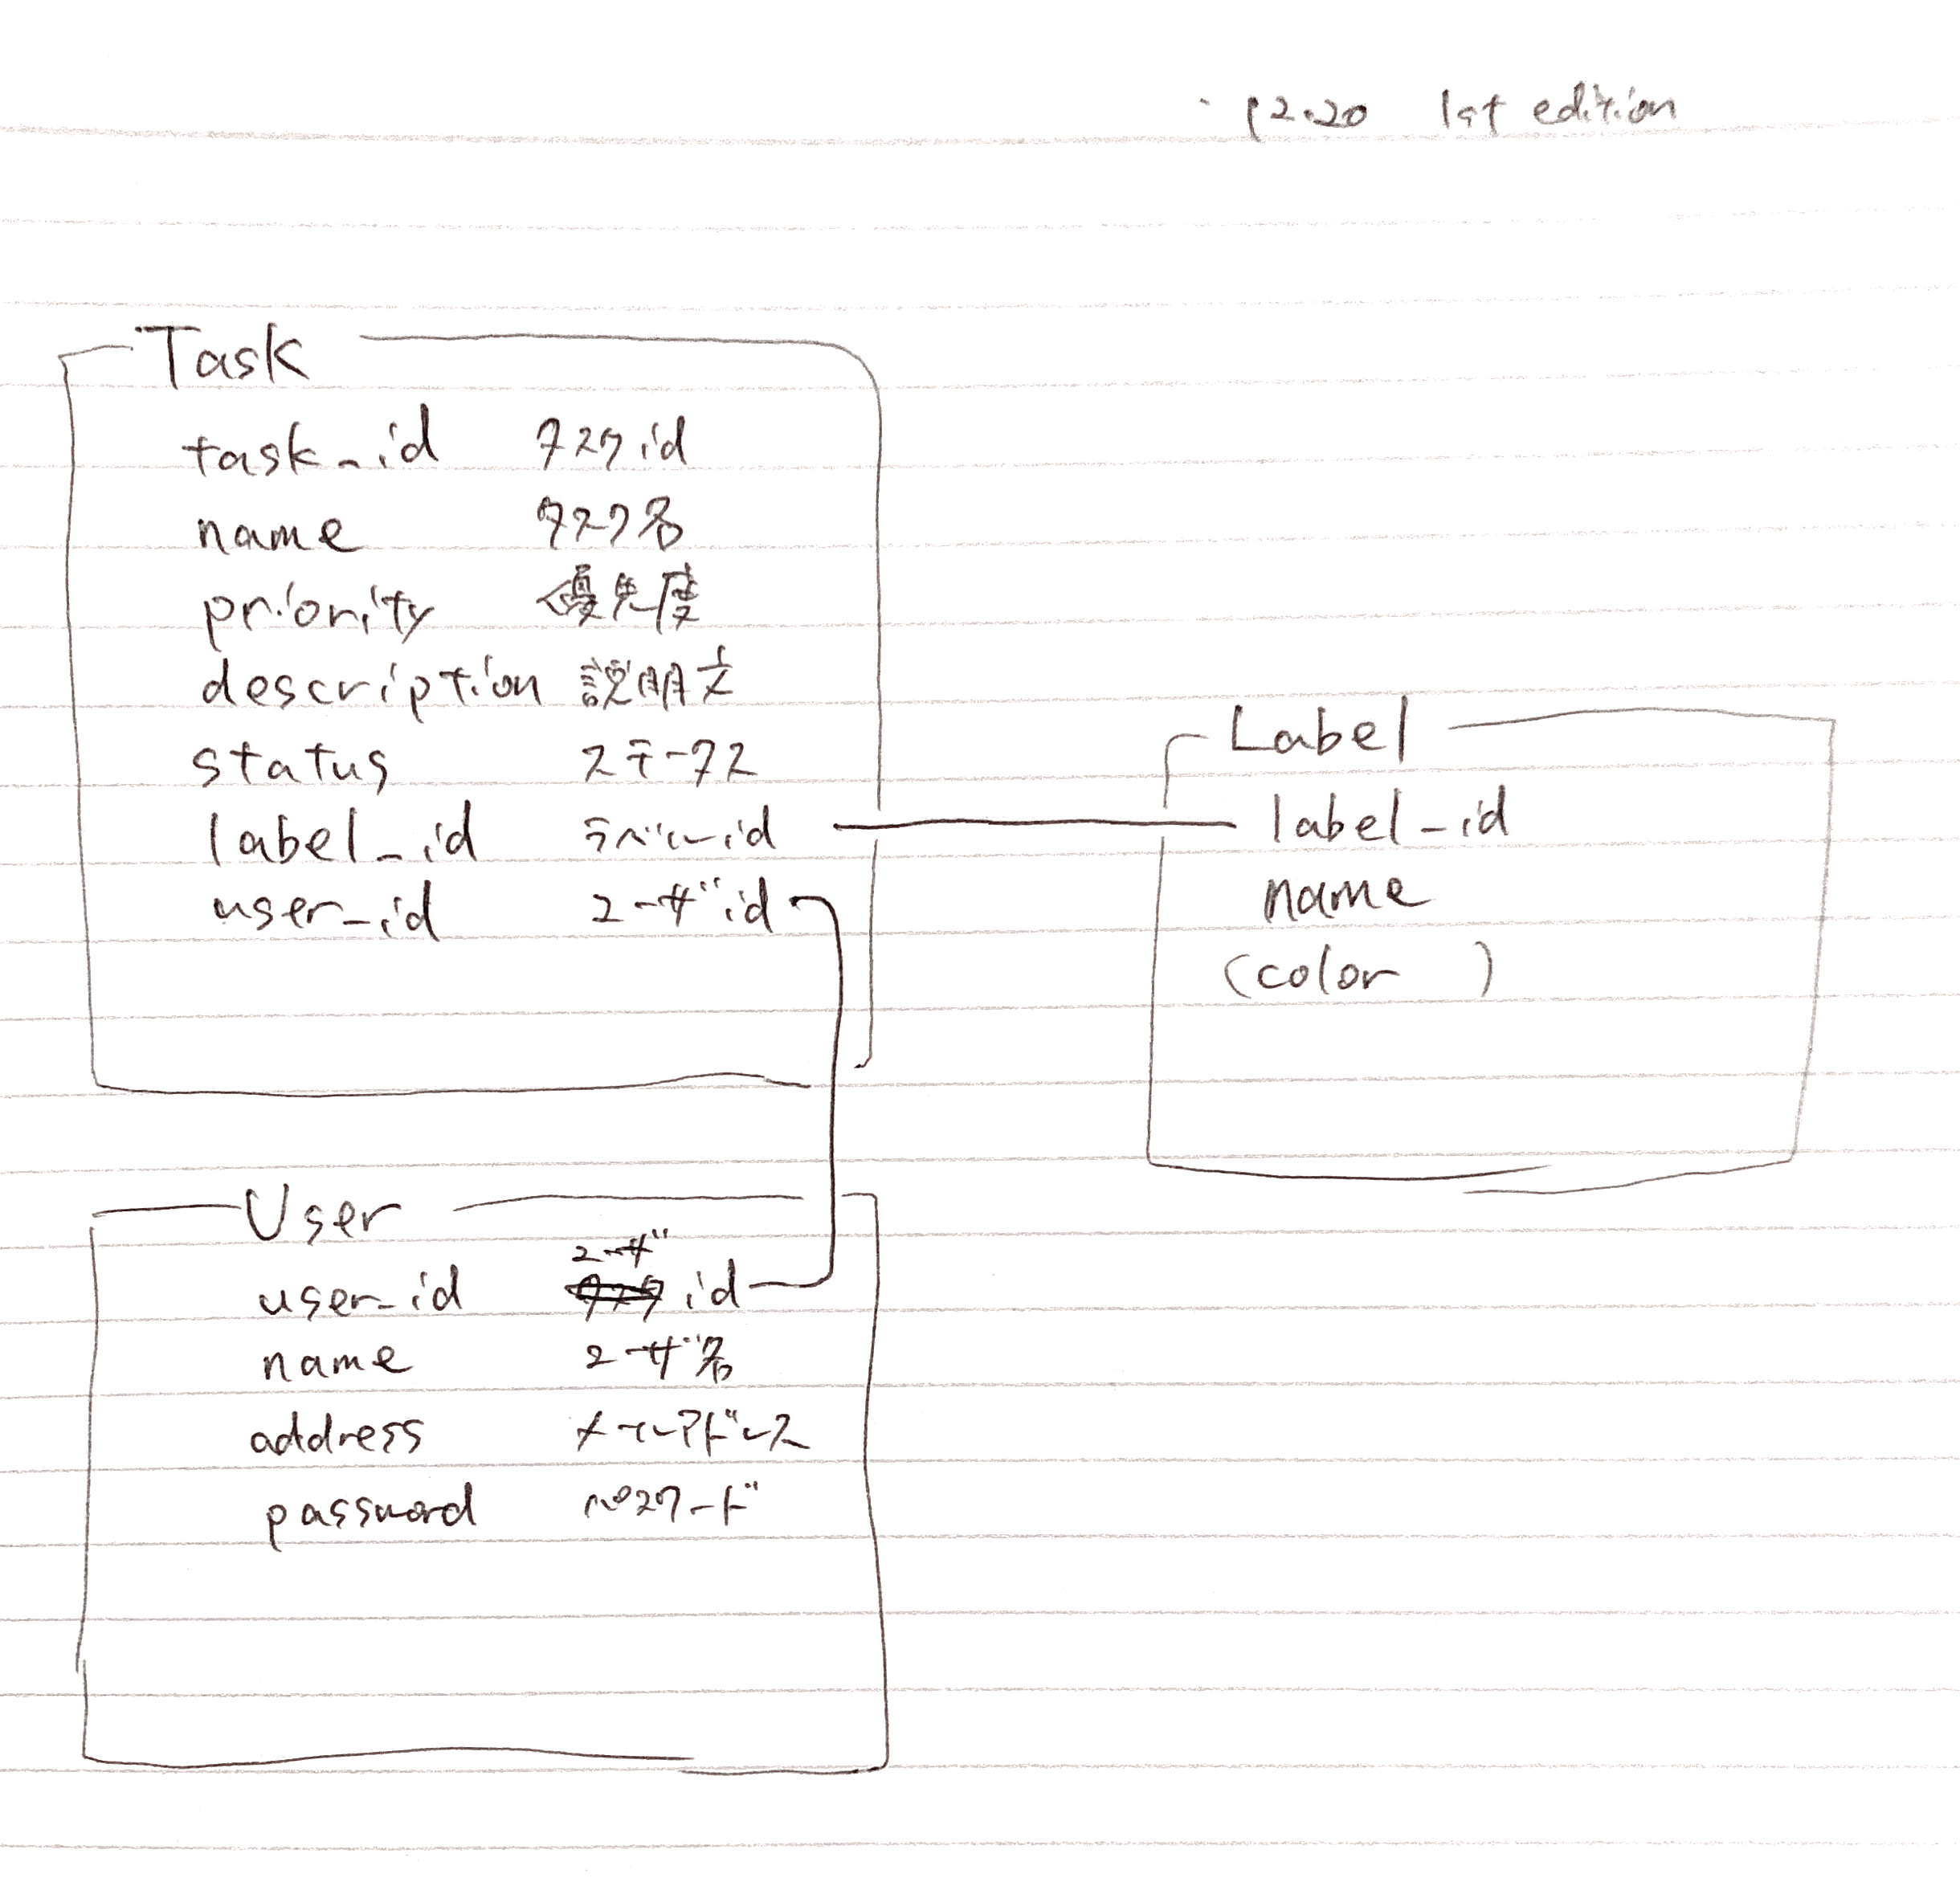 12.20 1st edition
Task
task_id タスクid
name タスク名
priority 優先度
description 説明文
status ステータス
label_id ラベルid
user_id ユーザid
Label
label_id
name
(color )
User
ユーザ
user_id タスク id
name ユーザ名
address メールアドレス
password パスワード